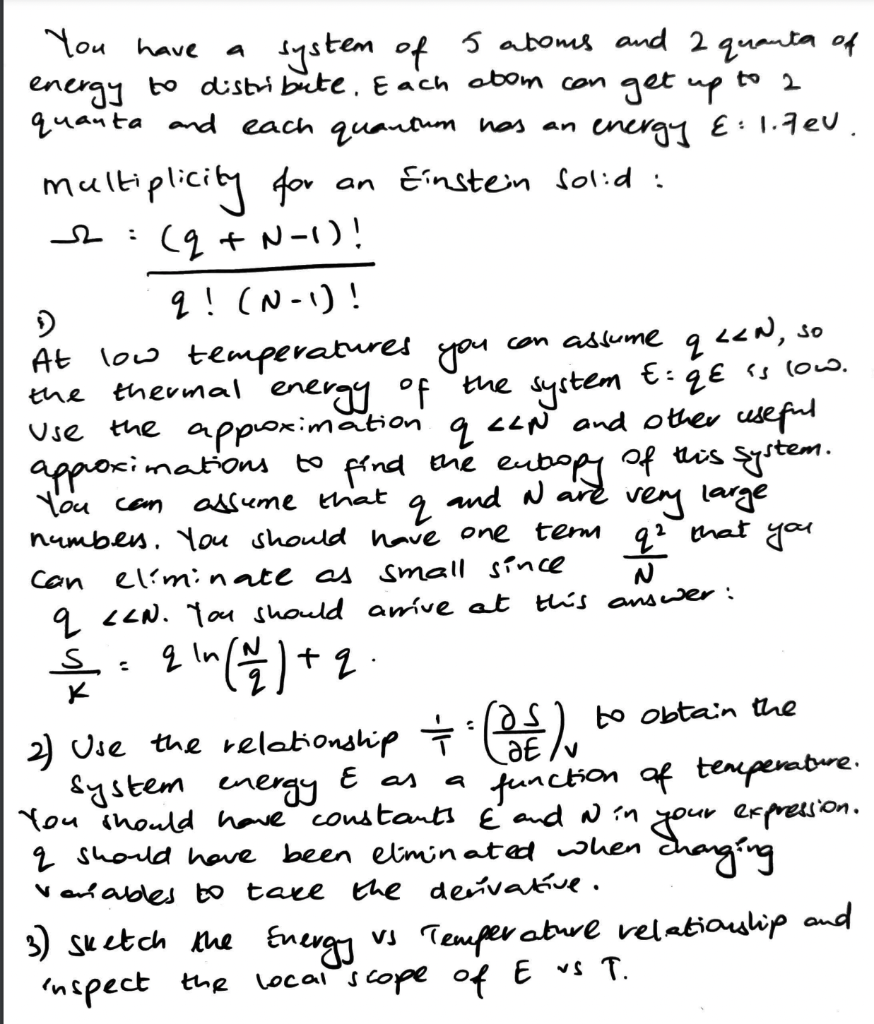 You have a system of 5 atoms and 2 quanta of
energy to distribute. Each atom can get up to 2
quanta and each quantum has an energy ε: 1.7eV.
multiplicity for an Einstein Solid:
Ω : (q + N-1)!
q! (N-1)!
1)
At low temperatures you can assume q <<N, so
the thermal energy of the system E: qε is low.
Use the approximation q <<N and other useful
approximations to find the entropy of this system.
You can assume that q and N are very large
numbers. You should have one term q²/N that you
can eliminate as small since
q <<N. You should arrive at this answer:
S/K = q ln(N/q) + q.
2) Use the relationship 1/T = (∂S/∂E)v to obtain the
system energy E as a function of temperature.
You should have constants ε and N in your expression.
q should have been eliminated when changing
variables to take the derivative.
3) Sketch the Energy vs Temperature relationship and
inspect the local slope of E vs T.